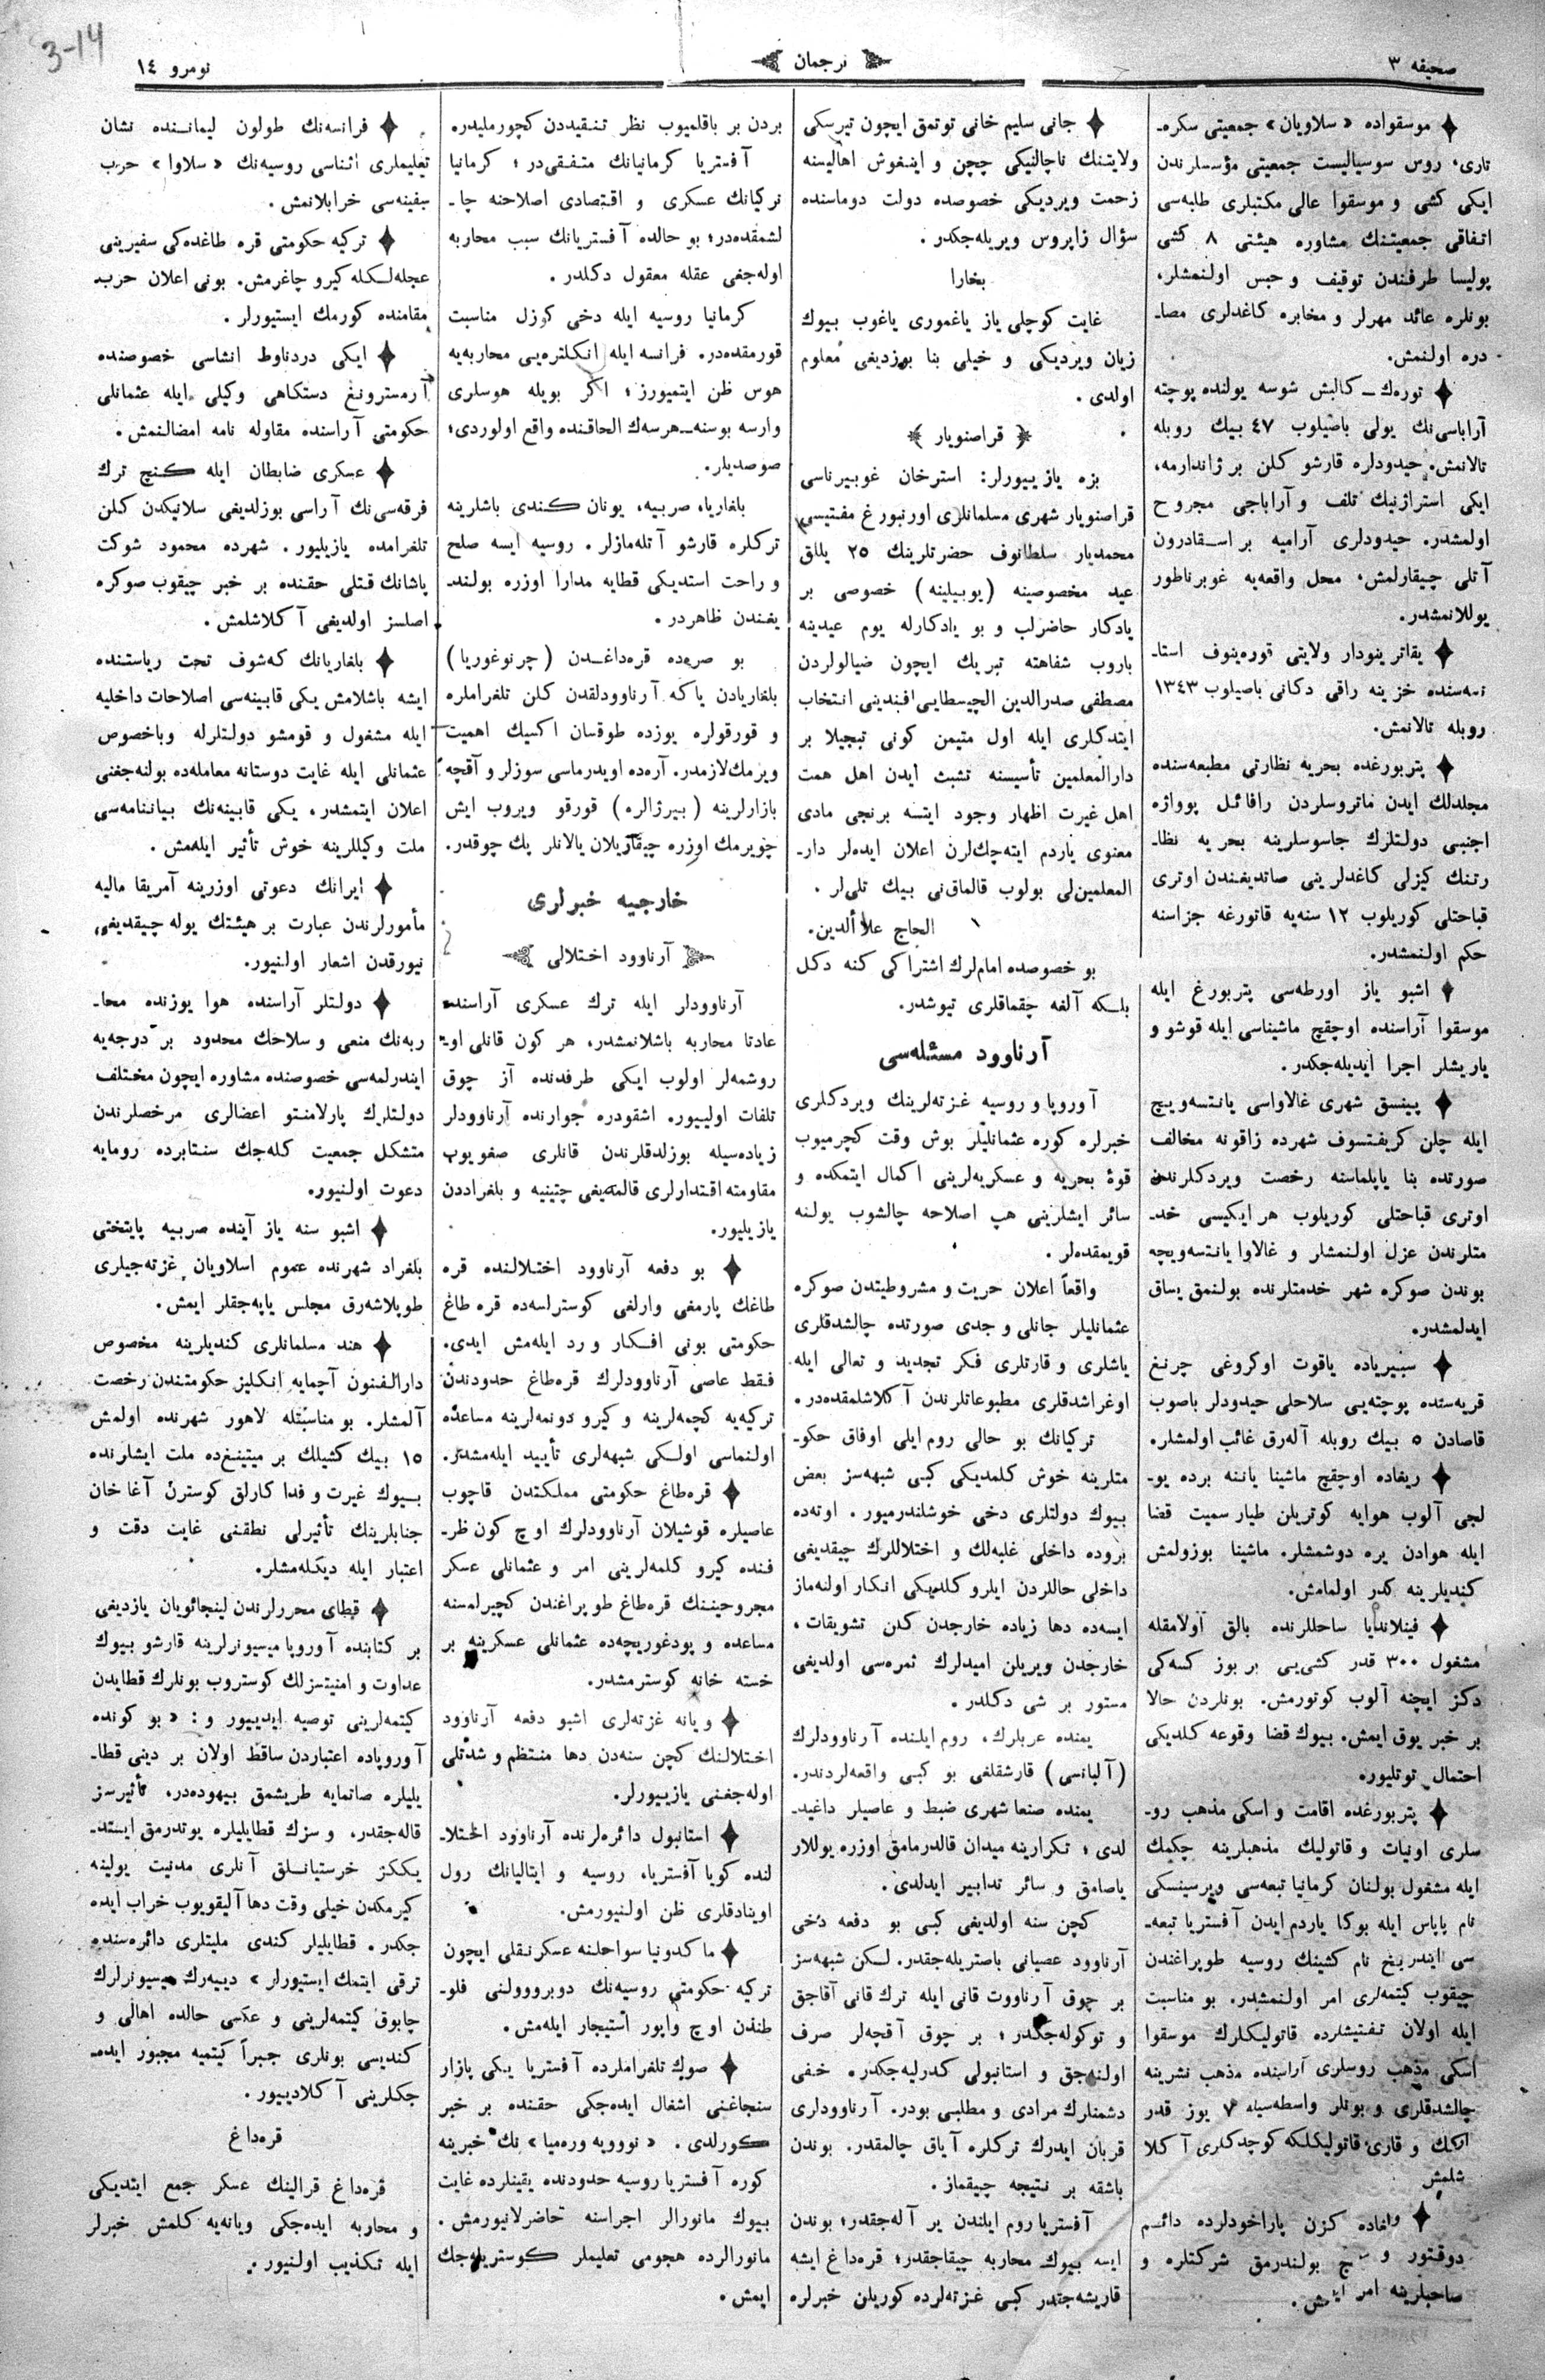 3-14
صحیفه ٣
ترجمان
نومرو ١٤
موسقواده «سلاویان» جمعیتی سكره‌ـ
تاری، روس سوسیالیست جمعیتی مؤسسلرندن
ایكی كشی و موسقوا عالی مكتبلری طلبه‌سی
اتفاقی جمعیتنك مشاوره هیئتی ٨ كشی
پولیسا طرفندن توقیف و حبس اولنمشلر،
بونلره عائد مهرلر و مخابره كاغدلری مصاـ
دره اولنمش.
توره‌ك ــ كالبش شوسه یولنده پوچته
آراباسی‌نك یولی باصیلوب ٤٧ بیك روبله
تالانمش. حیدودلره قارشو كلن بر ژاندارمه،
ایكی استراژنیك تلف و آراباجی مجروح
اولمشدر. حیدودلری آرامیه بر اسقادرون
آتلی چیقارلمش، محل واقعه‌یه غوبرناطور
یوللانمشدر.
یقاترینودار ولایتی توره‌ینوف استاـ
نسه‌سنده خزینه راقی دكانی باصیلوب ١٣٤٣
روبله تالانمش.
پتربورغده بحریه نظارتی مطبعه‌سنده
مجلدلك ایدن ماتروسلردن رافائل پوواژه
اجنبی دولتلرك جاسوسلرینه بحریه نظاـ
رتنك كیزلی كاغدلرینی صاتدیغندن اوتری
قباحتلی كوریلوب ١٢ سنه‌یه قاتورغه جزاسنه
حكم اولنمشدر.
اشبو یاز اورطه‌سی پتربورغ ایله
موسقوا آراسنده اوچقچ ماشیناسی ایله قوشو و
یاریشلر اجرا ایدیله‌جكدر.
پینسق شهری غالاواسی یانتسه‌ویچ
ایله چلن كریفتسوف شهرده زاقونه مخالف
صورتده بنا یاپلماسنه رخصت ویردكلرندن
اوتری قباحتلی كوریلوب هر ایكیسی خدـ
متلرندن عزل اولنمشلر و غالاوا یانتسه‌ویچه
بوندن صوكره شهر خدمتلرنده بولنمق یساق
ایدلمشدر.
سیبیریاده یاقوت اوكروغی چرنغ
قریه‌سنده پوچته‌یی سلاحلی حیدودلر باصوب
قاصادن ٥ بیك روبله آله‌رق غائب اولمشلر.
ریفاده اوچقچ ماشینا یاننه برده یوـ
لجی آلوب هوایه كوتریلن طیار سمیت قضا
ایله هوادن یره دوشمشلر. ماشینا بوزولمش
كندیلرینه كدر اولمامش.
فینلاندیا ساحللرنده بالق آولامقله
مشغول ٣٠٠ قدر كشی‌یی بر بوز كسه‌كی
دكز ایچنه آلوب كوتورمش. بونلردن حالا
بر خبر یوق ایمش. بیوك قضا وقوعه كلدیكی
احتمال توتلیور.
پتربورغده اقامت و اسكی مذهب روـ
سلری اونیات و قاتولیك مذهبلرینه چكمك
ایله مشغول بولنان كرمانیا تبعه‌سی ویرسینسكی
نام پاپاس ایله بوكا یاردم ایدن آفستریا تبعه‌ـ
سی ایندریخ نام كشینك روسیه طوپراغندن
چیقوب كیتمه‌لری امر اولنمشدر. بو مناسبت
ایله اولان تفتیشلرده قاتولیكلرك موسقوا
اسكی مذهب روسلری آراسنده مذهب نشرینه
چالشدقلری و بونلر واسطه‌سیله ٧ یوز قدر
اركك و قاری قاتولیكلكه كوچدكلری آكلا
شلمش
ولغاده كزن پاراخودلرده دائم
دوقتور و بولندرمق شركتلره و
صاحبلرینه امر
جانی سلیم خانی توتمق ایچون تیرسكی
ولایتنك ناچالنیكی چچن و اینغوش اهالیسنه
زحمت ویردیكی خصوصده دولت دوماسنده
سؤال زاپروس ویریله‌جكدر.
بخارا
غایت كوچلی یاز یاغموری یاغوب بیوك
زیان ویردیكی و خیلی بنا بوزدیغی معلوم
اولدی.
قراصنویار
بزه یازییورلر: استرخان غوبیرناسی
قراصنویار شهری مسلمانلری اورنبورغ مفتیسی
محمدیار سلطانوف حضرتلرینك ٢٥ یللق
عید مخصوصینه (یوبیلینه) خصوصی بر
یادكار حاضرلب و بو یادكارله یوم عیدینه
باروب شفاهته تبریك ایچون ضیالولردن
مصطفی صدرالدین الچیسطایی افندینی انتخاب
ایتدكلری ایله اول متیمن كونی تبجیلا بر
دارالمعلمین تأسیسنه تشبث ایدن اهل همت
اهل غیرت اظهار وجود ایتسه برنجی مادی
معنوی یاردم ایته‌چك‌لرن اعلان ایده‌لر دارـ
المعلمین‌لی بولوب قالماق‌نی بیك تلی‌لر.
الحاج علاألدین.
بو خصوصده امام‌لرك اشتراكی كنه دكل
بلكه آلفه چقماقلری تیوشدر.
آرناوود مسئله‌سی
آوروپا و روسیه غزته‌لرینك ویردكلری
خبرلره كوره عثمانلیلر بوش وقت كچرمیوب
قوۀ بحریه و عسكریه‌لرینی اكمال ایتمكده و
سائر ایشلرینی هپ اصلاحه چالشوب یولنه
قویمقده‌لر.
واقعاً اعلان حریت و مشروطیتدن صوكره
عثمانلیلر جانلی و جدی صورتده چالشدقلری
یاشلری و قارتلری فكر تجدید و تعالی ایله
اوغراشدقلری مطبوعاتلرندن آكلاشلمقده‌در.
تركیانك بو حالی روم ایلی اوفاق حكوـ
متلرینه خوش كلمدیكی كبی شبهه‌سز بعض
بیوك دولتلری دخی خوشلندرمیور. اوته‌ده
بروده داخلی غلبه‌لك و اختلاللرك چیقدیغی
داخلی حاللردن ایلرو كلدیكی انكار اولنه‌ماز
ایسه‌ده دها زیاده خارجدن كلن تشویقات،
خارجدن ویریلن امیدلرك ثمره‌سی اولدیغی
مستور بر شی دكلدر.
یمنده عربلرك، روم ایلنده آرناوودلرك
(آلبانسی) قارشقلغی بو كبی واقعه‌لردندر.
یمنده صنعا شهری ضبط و عاصیلر داغیدـ
لدی؛ تكرارینه میدان قالدرمامق اوزره یوللار
یاصامق و سائر تدابیر ایدلدی.
كچن سنه اولدیغی كبی بو دفعه دخی
آرناوود عصیانی باصتریله‌جقدر. لكن شبهه‌سز
بر چوق آرناووت قانی ایله ترك قانی آقاجق
و توكوله‌جكدر؛ بر چوق آقچه‌لر صرف
اولنه‌جق و استانبولی كدرلیه‌جكدر. خفی
دشمنلرك مرادی و مطلبی بودر. آرناوودلری
قربان ایدرك تركلره آیاق چالمقدر. بوندن
باشقه بر نتیجه چیقماز.
آفستریا روم ایلندن یر آله‌جقدر؛ بوندن
ایسه بیوك محاربه چیقاجقدر؛ قره‌داغ ایشه
قاریشه‌جقدر كبی غزته‌لرده كوریلن خبرلره
بردن بر باقلمیوب نظر تنقیددن كچورملیدر.
آفستریا كرمانیانك متفقی‌در؛ كرمانیا
تركیانك عسكری و اقتصادی اصلاحنه چاـ
لشمقده‌در؛ بو حالده آفستریانك سبب محاربه
اوله‌جغی عقله معقول دكلدر.
كرمانیا روسیه ایله دخی كوزل مناسبت
قورمقده‌در. فرانسه ایله انكلتره‌یی محاربه‌یه
هوس ظن ایتمیورز؛ اكر بویله هوسلری
وارسه بوسنه‌ــ‌هرسه‌ك الحاقنده واقع اولوردی؛
صوصدیلر.
بلغاریا، صربیه، یونان كندی باشلرینه
تركلره قارشو آتله‌مازلر. روسیه ایسه صلح
و راحت استدیكی قطایه مدارا اوزره بولندـ
یغندن ظاهردر.
بو صره‌ده قره‌داغدن (چرنوغوریا)
بلغاریادن یاكه آرناوودلقدن كلن تلغراملره
و قورقولره یوزده طوقسان اكسیك اهمیت
ویرمك لازمدر. آره‌ده اویدرماسی سوزلر و آقچه
بازارلرینه (بیرژالره) قورقو ویروب ایش
چویرمك اوزره چیقاریلان یالانلر پك چوقدر.
خارجیه خبرلری
آرناوود اختلالی
آرناوودلر ایله ترك عسكری آراسنده
عادتا محاربه باشلانمشدر، هر كون قانلی اوـ
روشمه‌لر اولوب ایكی طرفدنده آز چوق
تلفات اولییور. اشقودره جوارنده آرناوودلر
زیاده‌سیله بوزلدقلرندن قانلری صغویوب
مقاومته اقتدارلری قالمدیغی چتینیه و بلغراددن
یازیلیور.
بو دفعه آرناوود اختلالنده قره
طاغك پارمغی وارلغی كوسترلسه‌ده قره طاغ
حكومتی بونی افكار و رد ایله‌مش ایدی.
فقط عاصی آرناوودلرك قره‌طاغ حدودندن
تركیه‌یه كچمه‌لرینه و كیرو دونمه‌لرینه مساعده
اولنماسی اولكی شبهه‌لری تأیید ایله‌مشدر.
قره‌طاغ حكومتی مملكتدن قاچوب
عاصیلره قوشیلان آرناوودلرك اوچ كون ظرـ
فنده كیرو كلمه‌لرینی امر و عثمانلی عسكر
مجروحیننك قره‌طاغ طوپراغندن كچیرلمسنه
مساعده و پودغوریچه‌ده عثمانلی عسكرینه بر
خسته خانه كوسترمشدر.
ویانه غزته‌لری اشبو دفعه آرناوود
اختلالنك كچن سنه‌دن دها منتظم و شدتلی
اوله‌جغنی یازییورلر.
استانبول دائره‌لرنده آرناوود اختلاـ
لنده كویا آفستریا، روسیه و ایتالیانك رول
اوینادقلری ظن اولنیورمش.
ماكدونیا سواحلنه عسكر نقلی ایچون
تركیه حكومتی روسیه‌نك دوبروولنی فلوـ
طندن اوچ واپور استیجار ایله‌مش.
صوك تلغراملرده آفستریا یكی بازار
سنجاغنی اشغال ایده‌جكی حقنده بر خبر
كورلدی. «نوویه وره‌میا» نك خبرینه
كوره آفستریا روسیه حدودنده یقینلرده غایت
بیوك مانورالر اجراسنه حاضرلانیورمش.
مانورالرده هجومی تعلیملر كوستریله‌جك
ایمش.
فرانسه‌نك طولون لیماننده نشان
تعلیملری اثناسی روسیه‌نك «سلاوا» حرب
سفینه‌سی خرابلانمش.
تركیه حكومتی قره طاغده‌كی سفیرینی
عجله‌لكله كیرو چاغرمش. بونی اعلان حرب
مقامنده كورمك ایستیورلر.
ایكی دردناوط انشاسی خصوصنده
آرمسترونغ دستكاهی وكیلی ایله عثمانلی
حكومتی آراسنده مقاوله نامه امضالنمش.
عسكری ضابطان ایله كنچ ترك
فرقه‌سی‌نك آراسی بوزلدیغی سلانیكدن كلن
تلغرامده یازیلیور. شهرده محمود شوكت
پاشانك قتلی حقنده بر خبر چیقوب صوكره
اصلسز اولدیغی آكلاشلمش.
بلغاریانك كه‌شوف تحت ریاستنده
ایشه باشلامش یكی قابینه‌سی اصلاحات داخلیه
ایله مشغول و قومشو دولتلرله وباخصوص
عثمانلی ایله غایت دوستانه معامله‌ده بولنه‌جغنی
اعلان ایتمشدر، یكی قابینه‌نك بیاننامه‌سی
ملت وكیللرینه خوش تأثیر ایله‌مش.
ایرانك دعوتی اوزرینه آمریقا مالیه
مأمورلرندن عبارت بر هیئتك یوله چیقدیغی
نیورقدن اشعار اولنیور.
دولتلر آراسنده هوا یوزنده محاـ
ربه‌نك منعی و سلاحك محدود بر درجه‌یه
ایندرلمه‌سی خصوصنده مشاوره ایچون مختلف
دولتلرك پارلامنتو اعضالری مرخصلرندن
متشكل جمعیت كله‌جك سنتابرده رومایه
دعوت اولنیور.
اشبو سنه یاز آینده صربیه پایتختی
بلغراد شهرنده عموم اسلاویان غزته‌جیلری
طوپلاشه‌رق مجلس یاپه‌جقلر ایمش.
هند مسلمانلری كندیلرینه مخصوص
دارالفنون آچمایه انكلیز حكومتندن رخصت
آلمشلر. بو مناسبتله لاهور شهرنده اولمش
١٥ بیك كشیلك بر میتینغ‌ده ملت ایشلرنده
بیوك غیرت و فدا كارلق كوسترن آغا خان
جنابلرینك تأثیرلی نطقنی غایت دقت و
اعتبار ایله دیكله‌مشلر.
قطای محررلرندن لینجائویان یازدیغی
بر كتابنده آوروپا میسیونرلرینه قارشو بیوك
عداوت و امنیتسزلك كوستروب بونلرك قطایدن
كیتمه‌لرینی توصیه ایدییور و: «بو كونده
آوروپاده اعتباردن ساقط اولان بر دینی قطاـ
یلیلره صاتمایه طریشمق بیهوده‌در، تأثیرسز
قاله‌جقدر، و سزك قطایلیلره یوتدرمق ایستدـ
یككز خرستیانلق آنلری مدنیت یولینه
كیرمكدن خیلی وقت دها آلیقویوب خراب ایده
جكدر. قطایلیلر كندی ملیتلری دائره‌سنده
ترقی ایتمك ایستیورلر» دییه‌رك میسیونرلرك
چابوق كیتمه‌لرینی و عكسی حالده اهالی و
كندیسی بونلری جبراً كیتمیه مجبور ایده‌ـ
جكلرینی آكلادییور.
قره‌داغ
قره‌داغ قرالینك عسكر جمع ایتدیكی
و محاربه ایده‌جكی ویانه‌یه كلمش خبرلر
ایله تكذیب اولنیور.